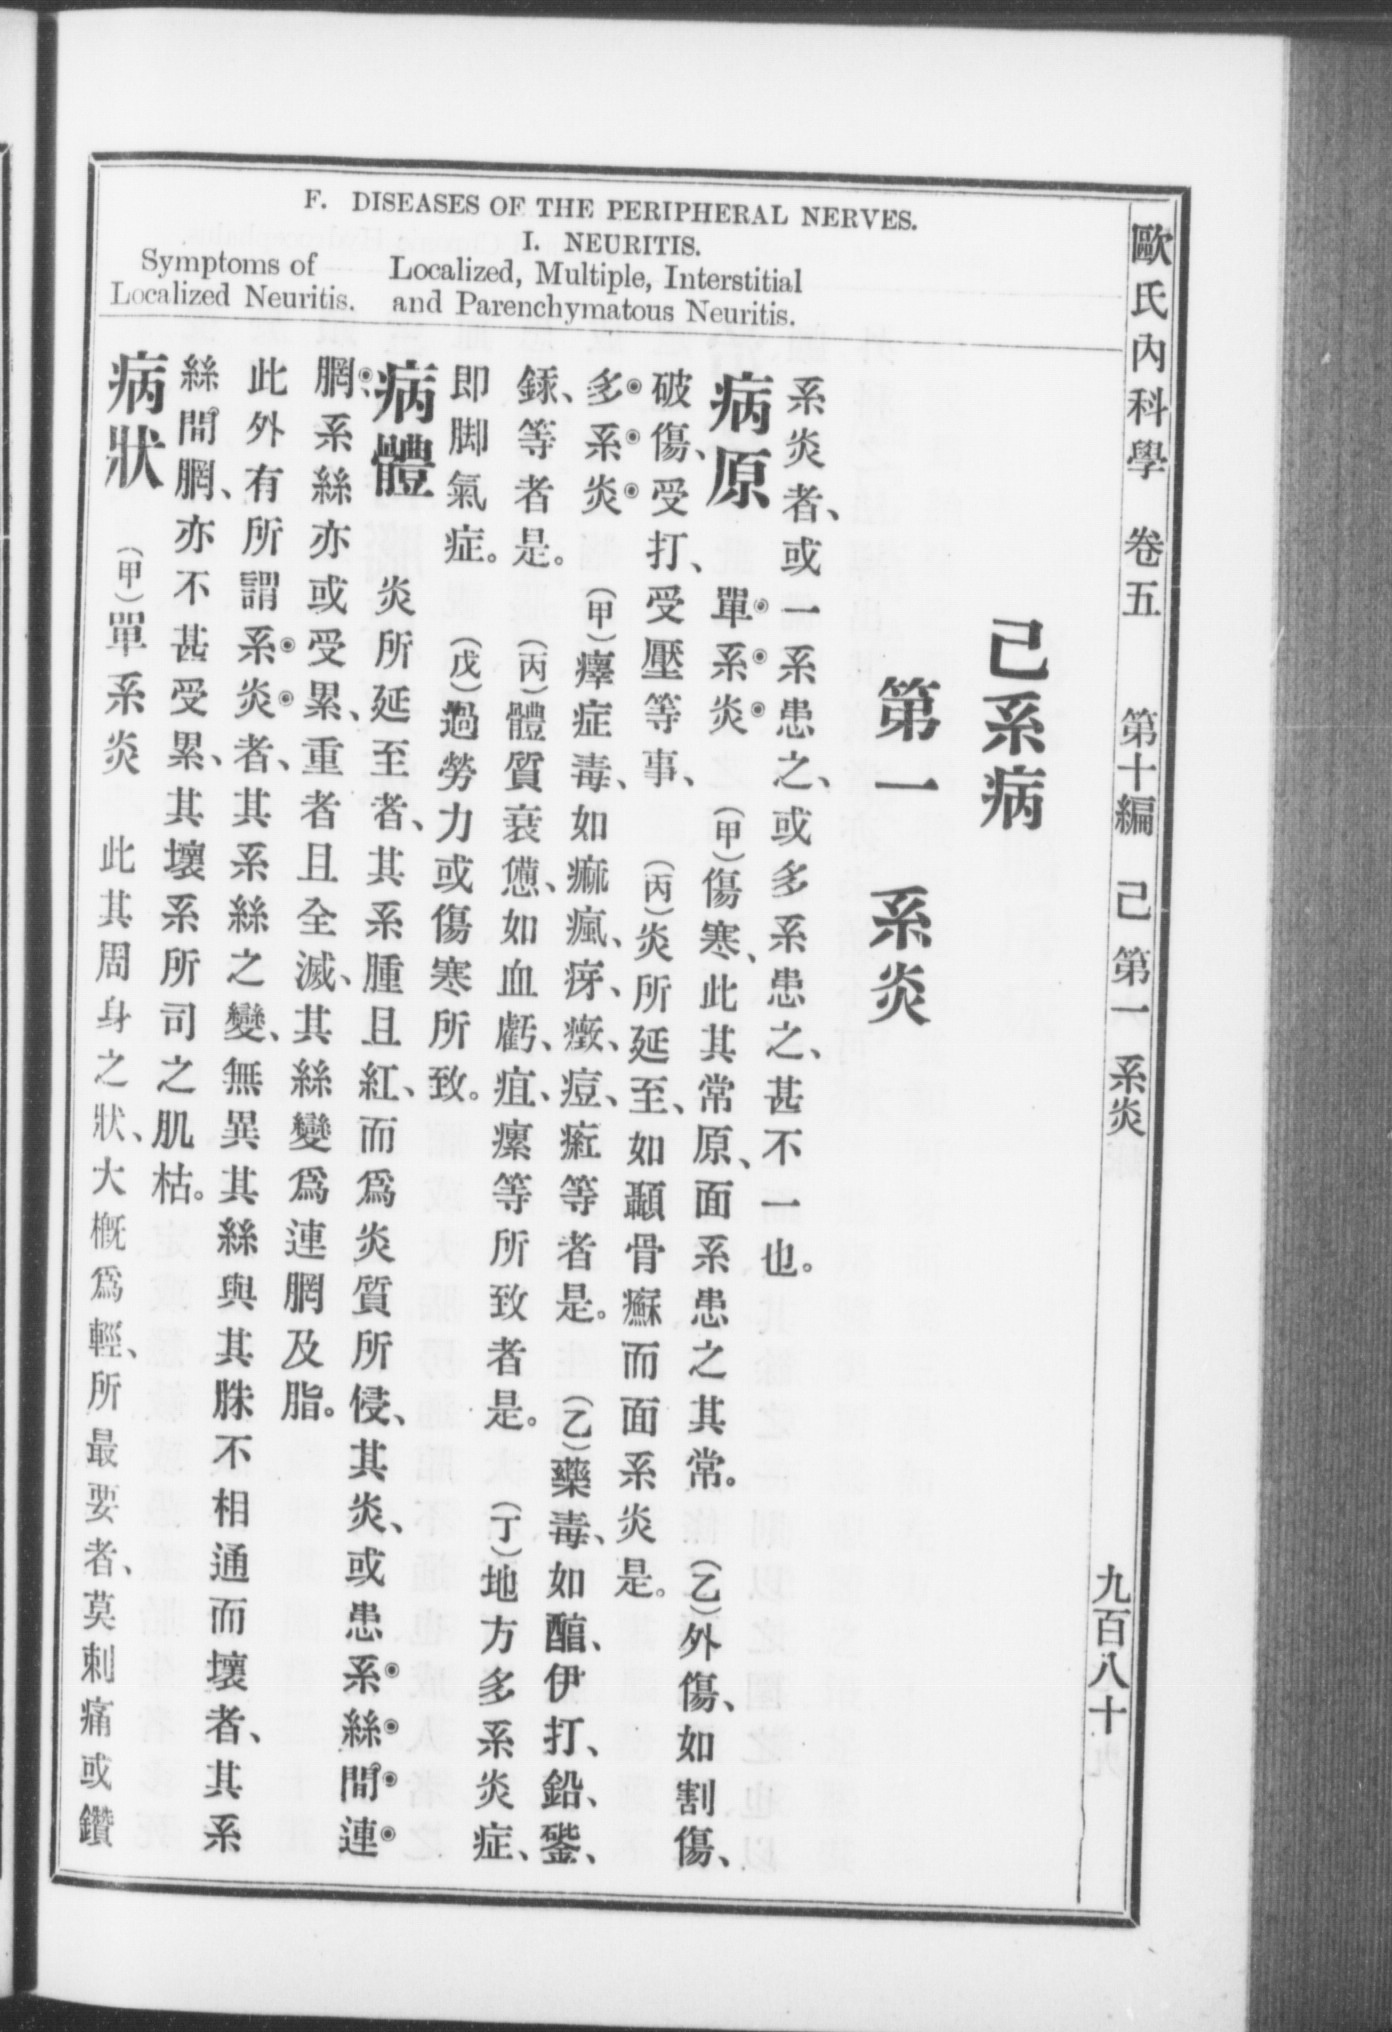 F. DISEASES OF THE PERIPHERAL NERVES.
I. NEURITIS.
Localized, Multiple, Interstitial
and Parenchymatous Neuritis.
Symptoms of
Localized Neuritis.
歐氏內科學 卷五 第十編 己 第一 系炎 九百八十九
己系病
第一 系炎
系炎者、或一系患之、或多系患之、甚不一也。
病原 單系炎 (甲)傷寒、此其常原、面系患之其常。 (乙)外傷、如割傷、
破傷、受打、受壓等事、 (丙)炎所延至、如顳骨癬而面系炎是。
多系炎 (甲)瘴症毒、如痲瘋、疨、癥、痘、㾏等者是。 (乙)藥毒、如醕、伊打、鉛、䥲、
銾等者是。 (丙)體質衰憊、如血虧、疽、瘰等所致者是。 (丁)地方多系炎症、
即脚氣症。 (戊)過勞力或傷寒所致。
病體 炎所延至者、其系腫且紅、而爲炎質所侵、其炎、或患系絲間連
膶、系絲亦或受累、重者且全滅、其絲變爲連膶及脂。
此外有所謂系炎者、其系絲之變、無異其絲與其胅不相通而壞者、其系
絲間膶、亦不甚受累、其壞系所司之肌枯。
病狀 (甲)單系炎 此其周身之狀、大槪爲輕、所最要者、莫刺痛或鑽